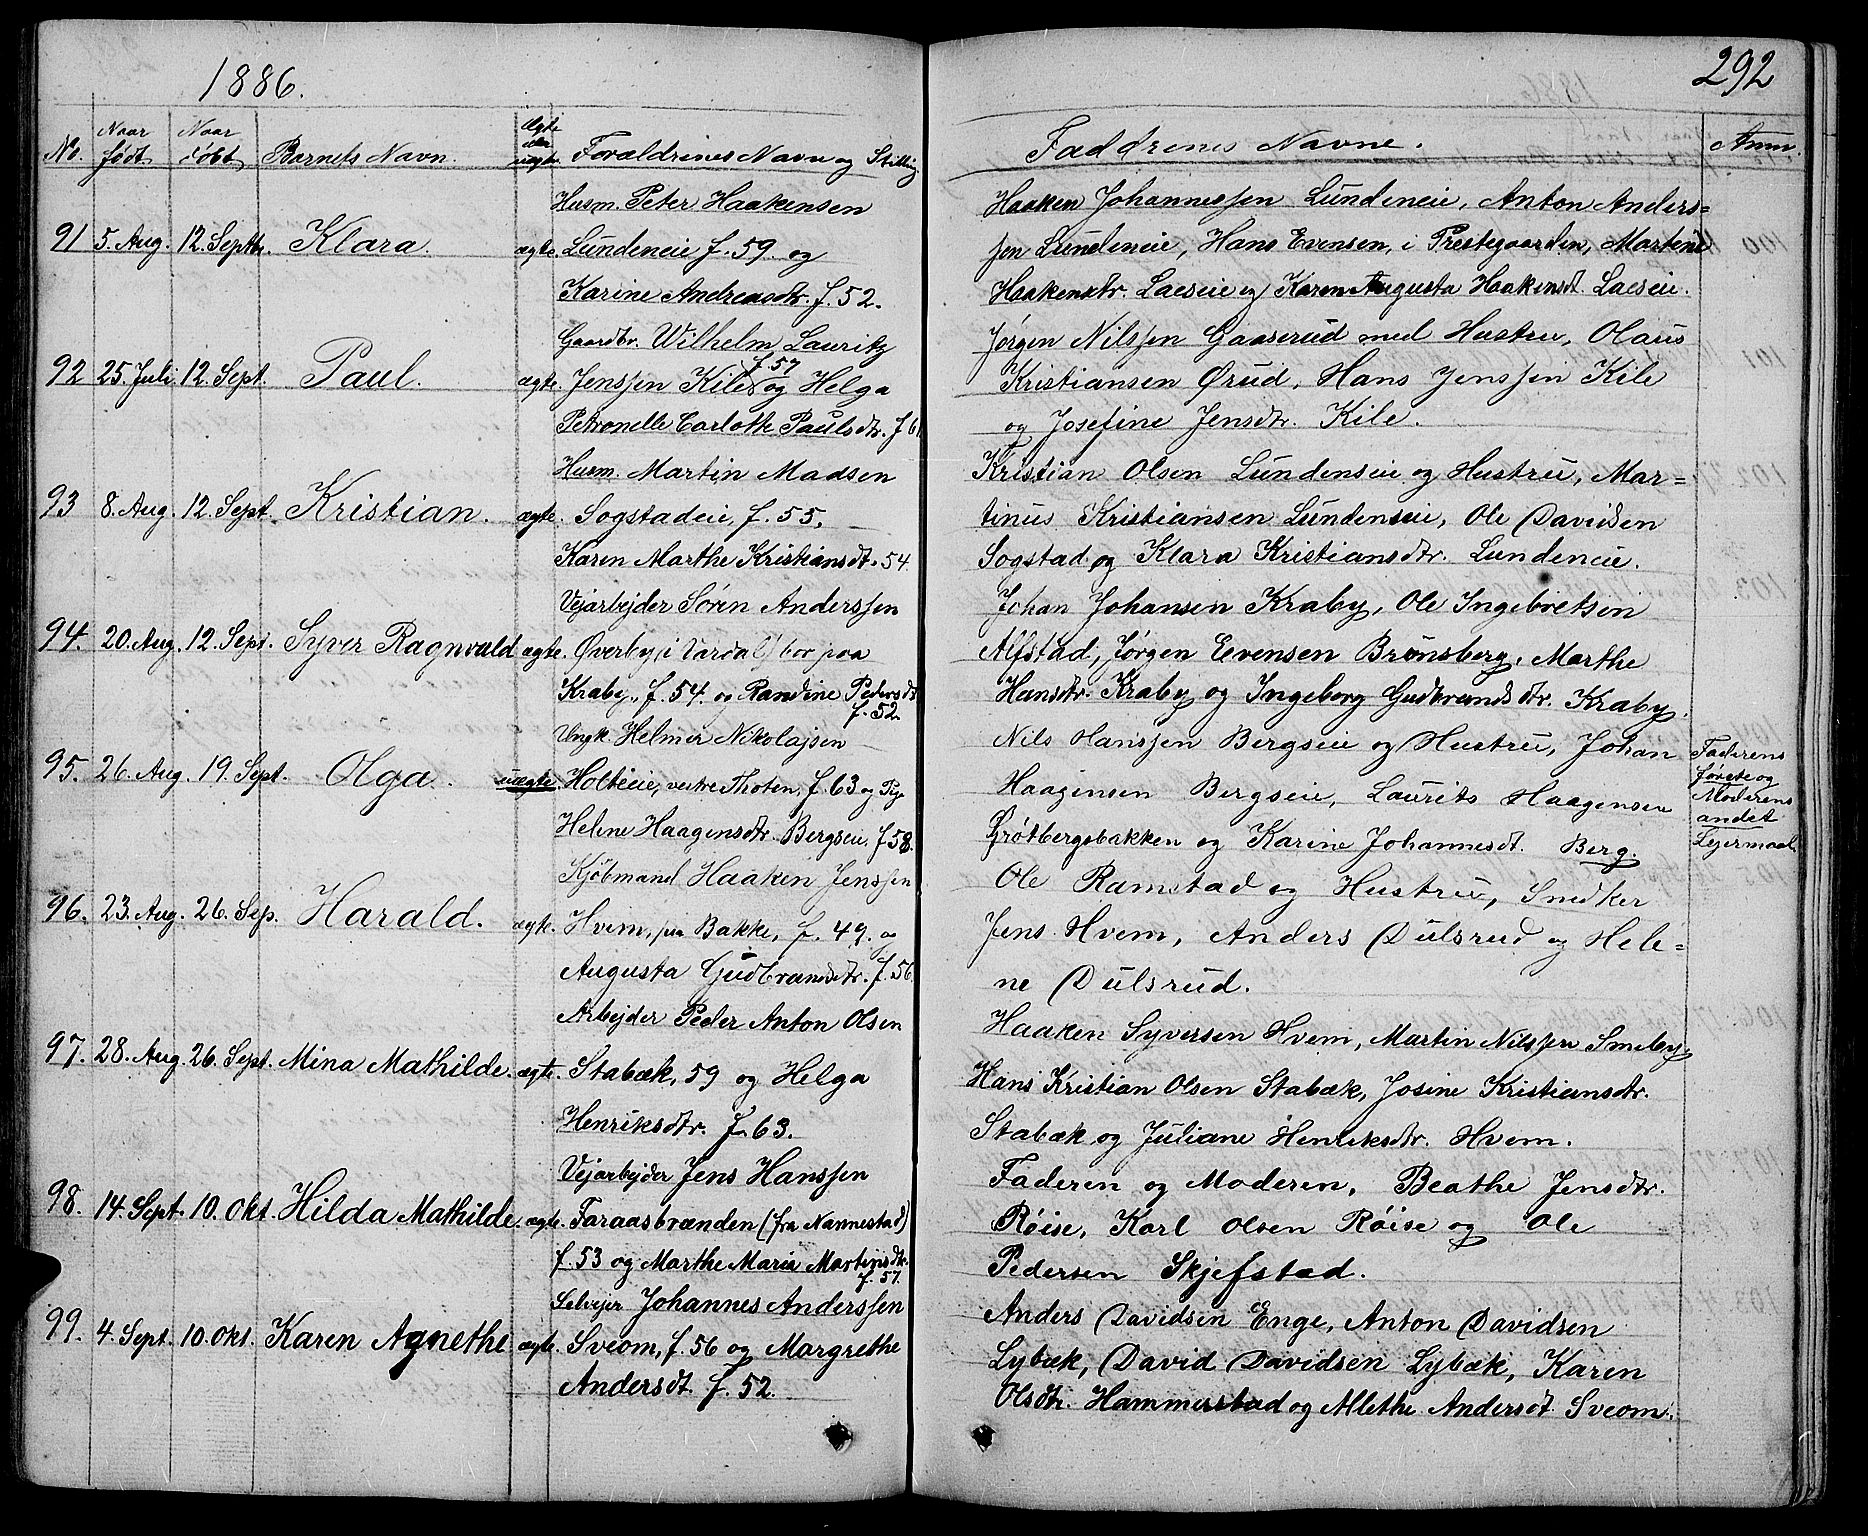 1886.
No. Naar født. Naar døbt. Barnets Navn. Ægte eller uægte. Forældrenes Navn og Stilling
Husm. Peter Haakensen
91 5. Aug. 12. Septbr. Klara. ægte. Lundeneie f. 59. og
Karine Andreasdtr. f. 52.
Gaardbr. Wilhelm Lauritz
92 25. Juli 12. Sept. Paul. ægte. Jenssen Kile f. 57 og Helga
Petronelle Carlothe Paulsdtr. f 61
Husm. Martin Madsen
93 8. Aug. 12. Sept. Kristian. ægte. Sogstadeie, f. 55.
Karen Marthe Kristiansdt. 54.
Vejarbejder Søren Anderssen
94. 20. Aug. 12. Sept. Syver Ragnvald ægte. Øverby, i Vardal, bor paa
Kraby, f. 54. og Randine Pedersdt.
f. 52.
Ungk. Helmer Nikolajsen
95. 26. Aug. 19. Sept. Olga. uægte. Holteie, vestre Thoten, f. 63 og Pige
Helene Haagensdtr. Bergseie, f 58.
Kjøbmand Haaken Jenssen
96. 23. Aug. 26. Sep. Harald. ægte. Hvem, paa Bakke, f. 49. og
Augusta Gudbrandsdtr. f. 56.
Arbejder Peder Anton Olsen
97. 28. Aug. 26. Sept. Mina Mathilde. ægte. Stabæk, 59 og Helga
Henriksdtr. f. 63.
Vejarbejder Jens Hanssen
98. 14. Sept. 10. Okt. Hilda Mathilde. ægte. Faraasbrænden (fra Nannestad)
f. 53 og Marthe Maria Martinsdtr.
f. 57.
Selvejer Johannes Anderssen
99. 4. Sept. 10. Okt. Karen Agnethe ægte. Sveom, f. 56 og Margrethe
Andersdt. f. 52.
292
Faddrenes Navne. Anm.
Haaken Johannessen Lundeneie, Anton Anders=
sen Lundeneie, Hans Evensen, i Prestegaarden, Martene
Haakensdtr. Laeseie og Karen Augusta Haakensdt. Laeseie.
Jørgen Nilssen Gaaserud med Hustru, Olaus
Kristiansen Ørud, Hans Jenssen Kile
og Josefine Jensdtr. Kile.
Kristian Olsen Lundenseie og Hustru, Mar=
tinus Kristiansen Lundenseie, Ole Davidsen
Sogstad og Klara Kristiansdtr. Lundeneie.
Johan Johansen Kraby, Ole Ingebretsen
Alfstad, Jørgen Evensen Brunsberg, Marthe
Hansdtr. Kraby og Ingeborg Gudbrandsdtr. Kraby.
Nils Hanssen Bergseie og Hustru, Johan
Haagensen Bergseie, Laurits Haagensen
Grøtbergsbakken og Karine Johannesdt. Berg.
Faderens
første og
Moderens
andet
Lejermaal.
Ole Ramstad og Hustru, Snedker
Jens Hvem, Anders Dulsrud og Hele=
ne Dulsrud.
Haaken Syversen Hvem, Martin Nilssen Smeby,
Hans Kristian Olsen Stabæk, Josine Kristiansdtr.
Stabæk og Juliane Henriksdtr. Hvem.
Faderen og Moderen, Beathe Jensdtr.
Røise, Karl Olsen Røise og Ole
Pedersen Skjefstad.
Anders Davidsen Enge, Anton Davidsen
Lybæk, David Davidsen Lybæk, Karen
Olsdtr. Hammerstad og Allethe Andersdt. Sveom.